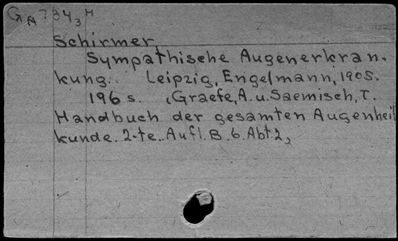 Schirmer
Sympathische Augenerkran.
kung. Leipzig, Engelmann, 1905.
196 s. (Graefe, A. u. Saemisch, T.
Handbuch der gesamten Augenheil
kunde. 2-te. Aufl. B. 6. Abt 2,